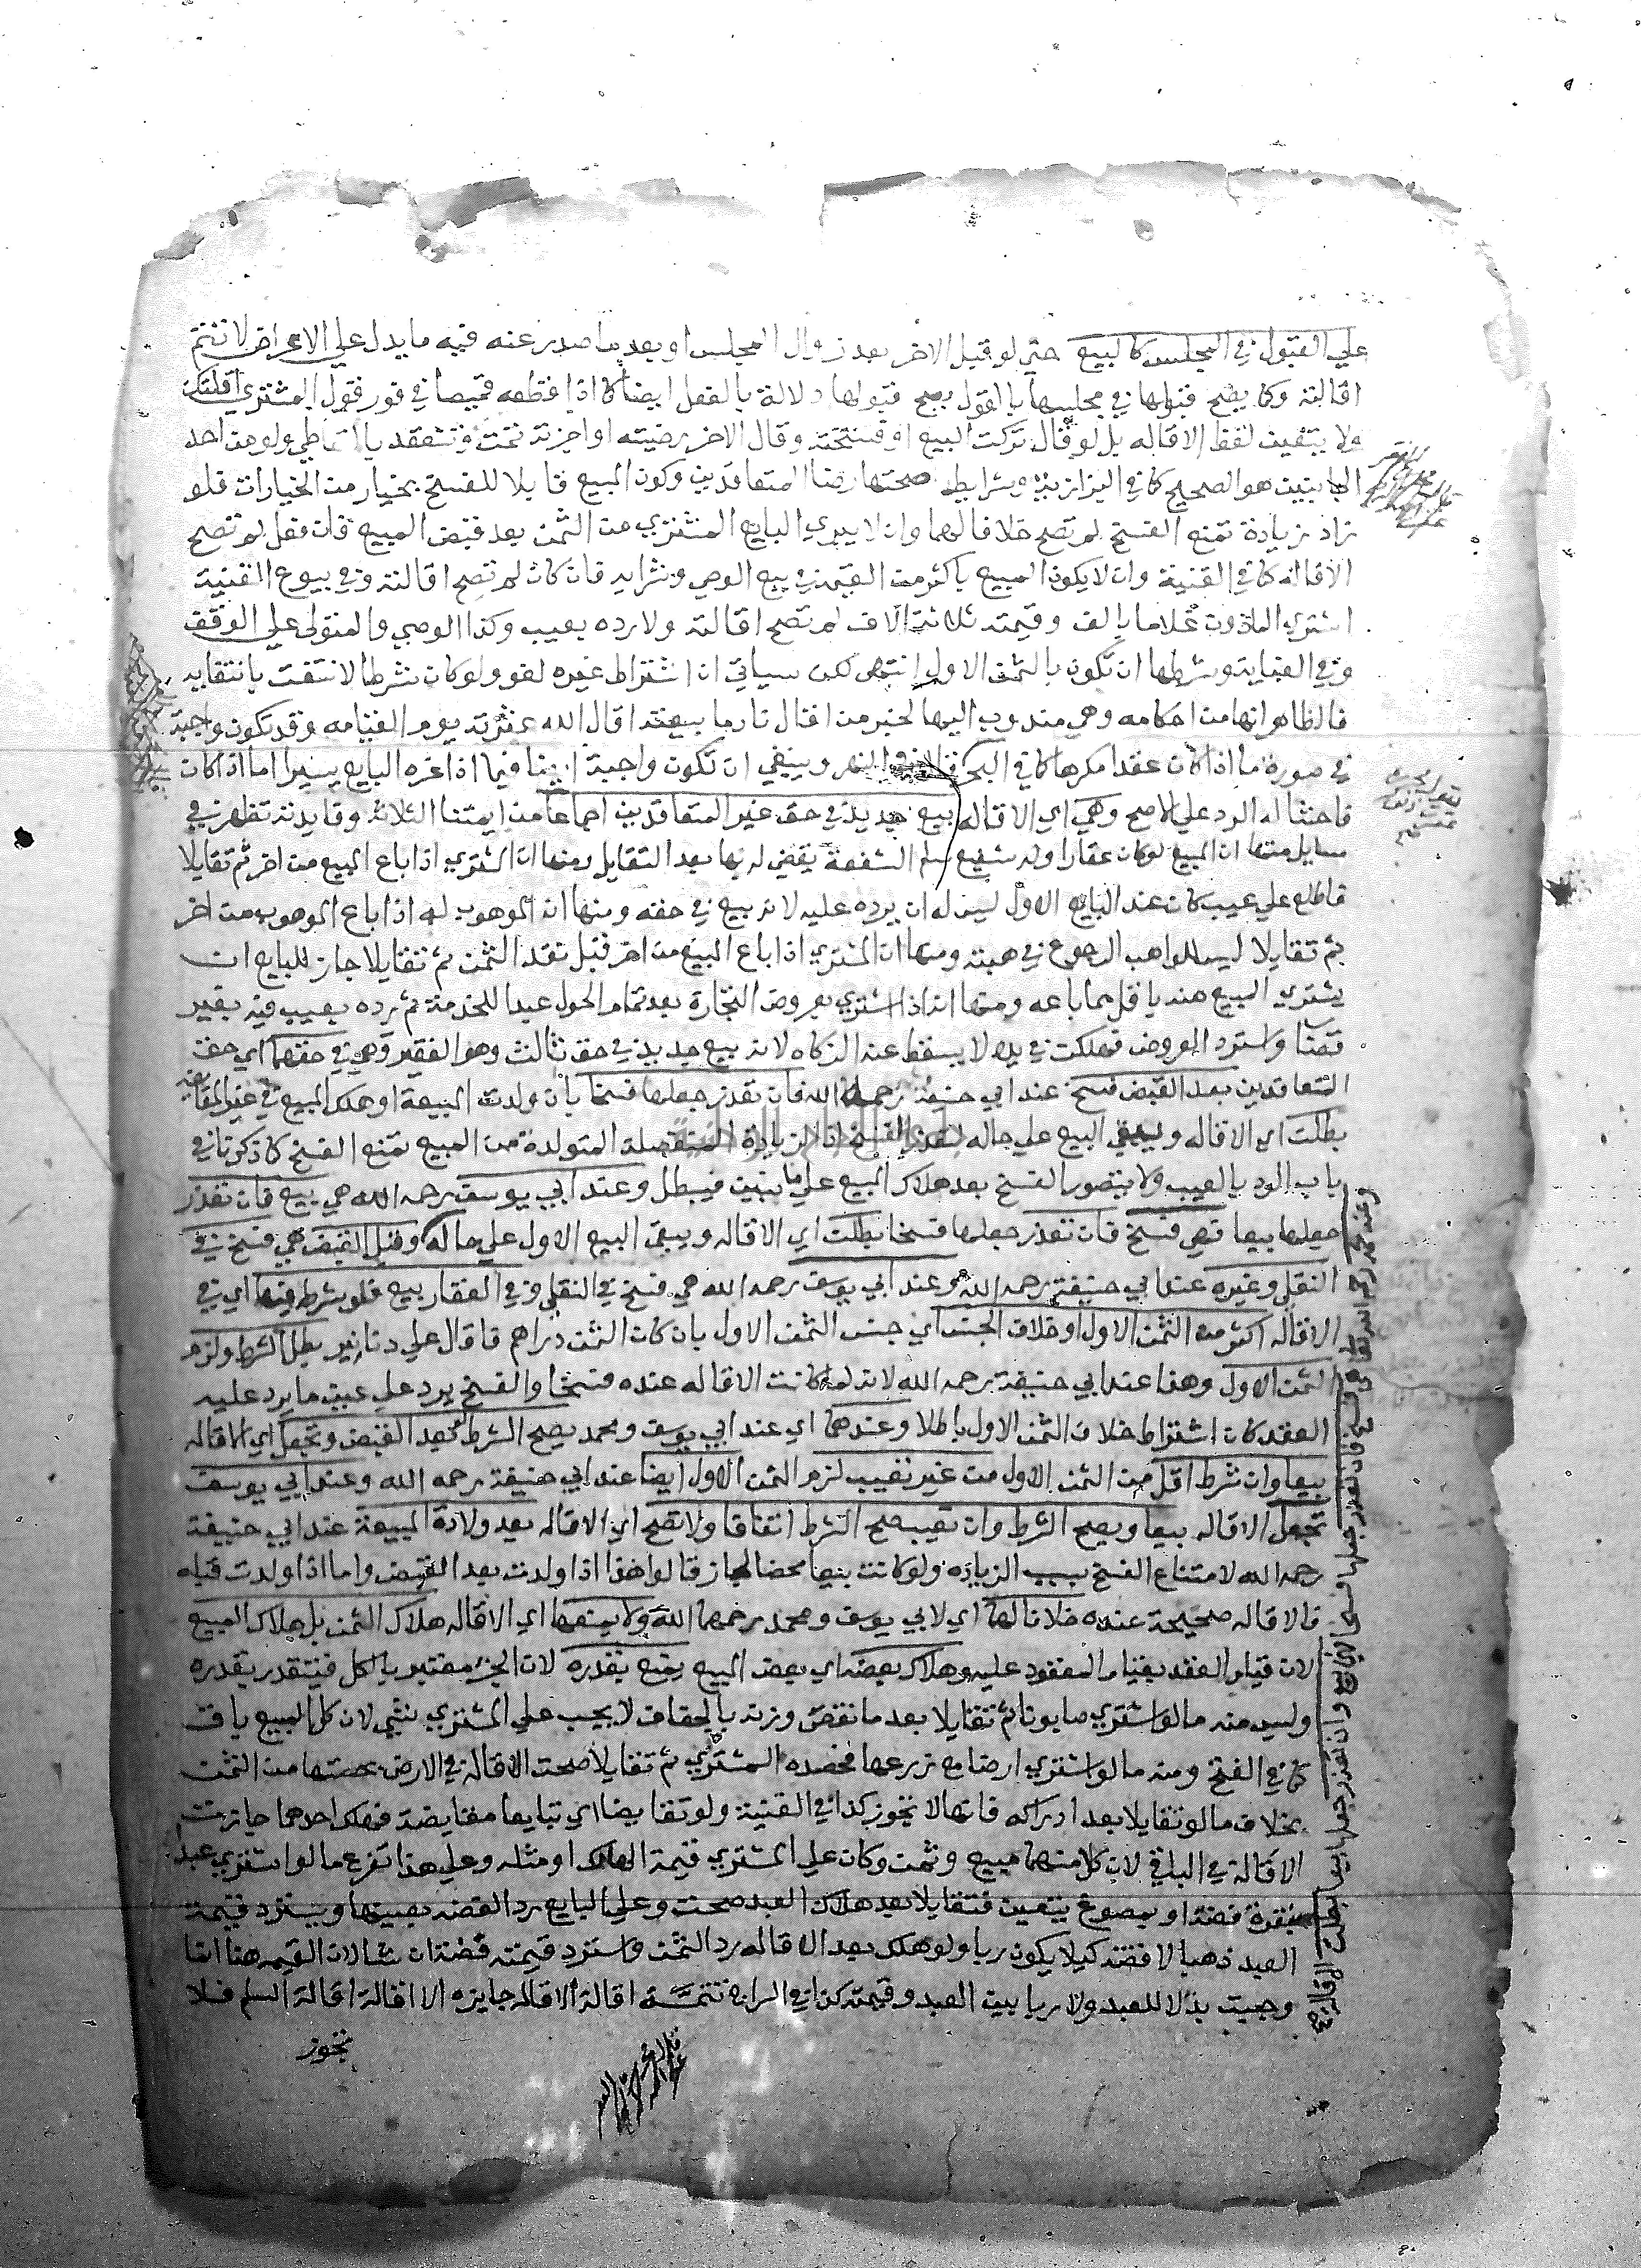 علي القبول في المجلس كالبيع حتي لو قبل الاخر بعد زوال المجلس او بعد ما صدر عنه فيه ما يدل علي الاعراض لا تتم
اقالته وكما يصح قبولها في مجلسها بالقول يصح قبولها دلالة بالفعل ايضا كما اذا قطعه قميصا في فور قول المشتري اقلتك
ولا يتعين لفظ الاقاله بل لو قال تركت البيع او فسخته وقال الاخر رضيته او اجزته تمت وتنعقد بالتعاطي ولو من احد
الجانبين هو الصحيح كما في البزازية وشرايط صحتها رضا المتعاقدين وكون المبيع قابلا للفسخ بخيار من الخيارات فلو
زاد زيادة تمنع الفسخ لم تصح خلافا لهما وان لا يبري البايع المشتري من الثمن بعد قبض المبيع فان فعل لم تصح
الاقاله كما في القنية وان لا يكون المبيع باكثر من القيمة في بيع الوصي وشرايه فان كان لم تصح اقالته وفي بيوع القنية
اشتري الماذون غلاما بالف وقيمته ثلاثة الاف لم تصح اقالته ولا رده بعيب وكذا الوصي والمتولي علي الوقف
وفي العناية وشرطها ان تكون بالثمن الاول انتهي لكن سياتي ان اشتراط غيره لغو ولو كان شرطا لانتفت بانتفايه
فالظاهر انها من احكامه وهي مندوب اليها لخبر من اقال نادما بيعته اقال الله عثرته يوم القيامه وقد تكون واجبة
في صورة ما اذا كان عقدا مكرها كما في البحر قال في النهر وينبغي ان تكون واجبة ايضا فيما اذا غره البايع يسيرا اما اذا كان
فاحشا له الرد علي الاصح وهي اي الاقاله بيع جديد في حق غير المتعاقدين اجماعا من ايمتنا الثلاثه وفايدته تظهر في
مسايل منها ان المبيع لو كان عقارا وله شفيع سلم الشفعة يقضي له بها بعد التقايل ومنها ان المشتري اذا باع المبيع من اخر ثم تقايلا
فاطلع علي عيب كان عند البايع الاول ليس له ان يرده عليه لانه بيع في حقه ومنها ان الموهوب له اذا باع الموهوب من اخر
ثم تقايلا ليس للواهب الرجوع في هبته ومنها ان المشتري اذا باع المبيع من اخر قبل نقد الثمن ثم تقايلا جاز للبايع ان
يشتري المبيع منه باقل مما باعه ومنها انه اذا اشتري بعروض التجارة بعد تمام الحول عبدا للخدمة ثم رده بعيب فيه بغير
قضا واسترد العروض فهلكت في يده لا يسقط عنه الزكاه لانه بيع جديد في حق ثالث وهو الفقير وهي في حقهما اي حق
المتعاقدين بعد القبض فسخ عند ابي حنيفة رحمه الله فان تعذر جعلها فسخا بان ولدت المبيعة او هلك المبيع في غير المقايضه
بطلت اي الاقاله ويبقي البيع علي حاله لتعذر الفسخ اذ الزيادة المنفصلة المتولدة من المبيع تمنع الفسخ كما ذكرنا في
باب الرد بالعيب ولا يتصور الفسخ بعد هلاك المبيع علي ما يتبين فيبطل وعند ابي يوسف رحمه الله هي بيع فان تعذر
جعلها بيعا فهي فسخ فان تعذر جعلها فسخا بطلت اي الاقاله ويبقي البيع الاول علي حاله وقبل القبض هي فسخ في
النقلي وغيره عند ابي حنيفة رحمه الله وعند ابي يوسف رحمه الله هي فسخ في النقلي وفي العقار بيع فلو شرط فيها اي في
الاقاله اكثر من الثمن الاول او خلاف الجنس اي جنس الثمن الاول بان كان الثمن دراهم فاقال علي دنانير بطل الشرط ولزم
الثمن الاول وهذا عند ابي حنيفة رحمه الله لانه لما كانت الاقاله عنده فسخا والفسخ يرد علي عين ما يرد عليه
العقد كان اشتراط خلاف الثمن الاول باطلا وعندهما اي عند ابي يوسف ومحمد يصح الشرط بعد القبض وتجعل اي الاقاله
بيعا وان شرط اقل من الثمن الاول من غير تعيب لزم الثمن الاول ايضا عند ابي حنيفة رحمه الله وعند ابي يوسف
تجعل الاقاله بيعا ويصح الشرط وان تعيب صح الشرط اتفاقا ولا تصح اي الاقاله بعد ولادة المبيعة عند ابي حنيفة
رحمه الله لامتناع الفسخ بسبب الزياده ولو كانت بيعا محضا لجاز قالوا هذا اذا ولدت بعد القبض واما اذا ولدت قبله
فالاقاله صحيحة عنده خلافا لهما اي لابي يوسف ومحمد رحمهما الله ولا يمنعها اي الاقاله هلاك الثمن بل هلاك المبيع
لان قيام العقد بقيام المعقود عليه وهلاك بعضه اي بعض المبيع يمنع بقدره لان الجزء معتبر بالكل فيتقدر بقدره
وليس منه ما لو اشتري صابونا ثم تقايلا بعد ما نقص وزنه بالجفاف لا يجب علي المشتري شي لان كل المبيع باق
كما في الفتح ومنه ما لو اشتري ارضا مع زرعها فحصده المشتري ثم تقايلا صحت الاقاله في الارض بحصتها من الثمن
بخلاف ما لو تقايلا بعد ادراكه فانها لا تجوز كذا في القنية ولو تقايضا اي تبايعا مقايضة فهلك احدهما جازت
الاقاله في الباقي لان كلا منهما مبيع وثمن وكان علي المشتري قيمة الهالك او مثله وعلي هذا تفرع ما لو اشتري عبدا
بنقرة فضة او بمصوغ يتعين فتقايلا بعد هلاك العبد صحت وعلي البايع رد الفضه بعينها ويسترد قيمة
العبد ذهبا لا فضة كيلا يكون ربا ولو هلك بعد الاقاله رد الثمن واسترد قيمته فضة ان شا لان القيمه هنا انما
وجبت بدلا للعبد ولا ربا بين العبد وقيمته كذا في السراج تتمة اقالة الاقاله جايزه الا اقالة اقالة السلم فلا
تجوز